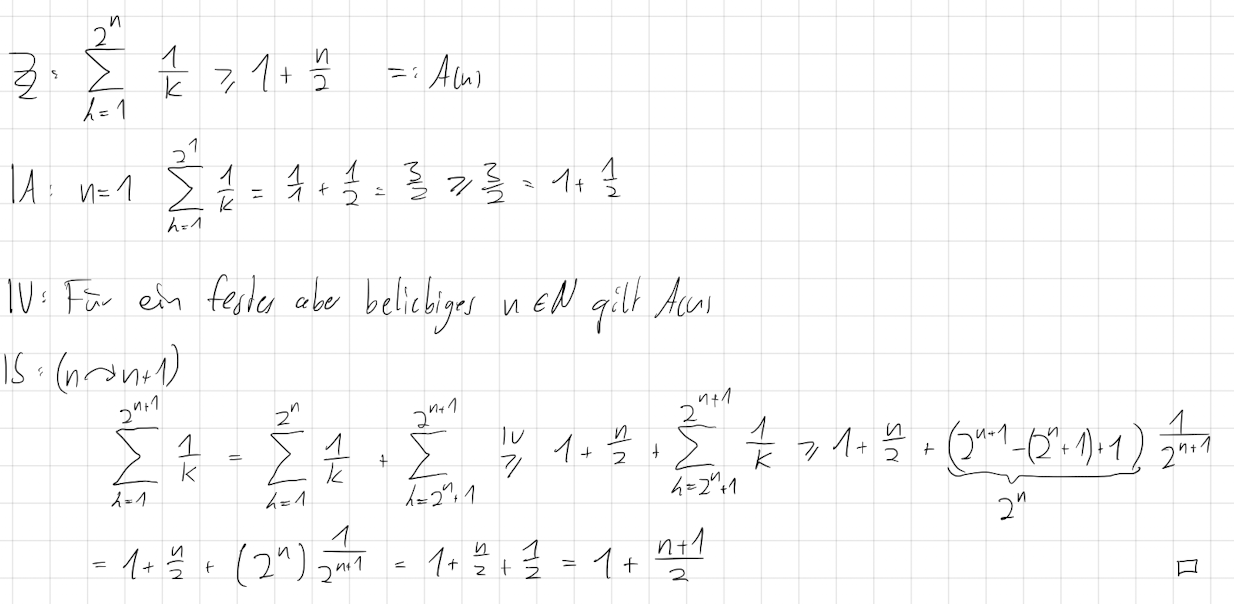 Z: \sum_{k=1}^{2^n} \frac{1}{k} ≥ 1 + \frac{n}{2} =: A(n)
IA: n=1 \sum_{k=1}^{2^1} \frac{1}{k} = \frac{1}{1} + \frac{1}{2} = \frac{3}{2} ≥ \frac{3}{2} = 1 + \frac{1}{2}
IV: Für ein festes aber beliebiges n ∈ N gilt A(n)
IS: (n ↷ n+1)
\sum_{k=1}^{2^{n+1}} \frac{1}{k} = \sum_{k=1}^{2^n} \frac{1}{k} + \sum_{k=2^n+1}^{2^{n+1}} \overset{IV}{≥} 1 + \frac{n}{2} + \sum_{k=2^n+1}^{2^{n+1}} \frac{1}{k} ≥ 1 + \frac{n}{2} + \underbrace{(2^{n+1} - (2^n+1) + 1)}_{2^n} \frac{1}{2^{n+1}}
= 1 + \frac{n}{2} + (2^n) \frac{1}{2^{n+1}} = 1 + \frac{n}{2} + \frac{1}{2} = 1 + \frac{n+1}{2} □